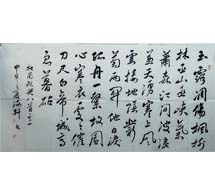 玉露凋傷楓樹
林巫山巫峽氣
蕭森江间波浪
兼天湧塞上風
雲接地陰叢
菊兩開他日淚
孤舟一繫故園
心寒衣處處催
刀尺白帝城高
急暮砧
杜甫秋興八首之一